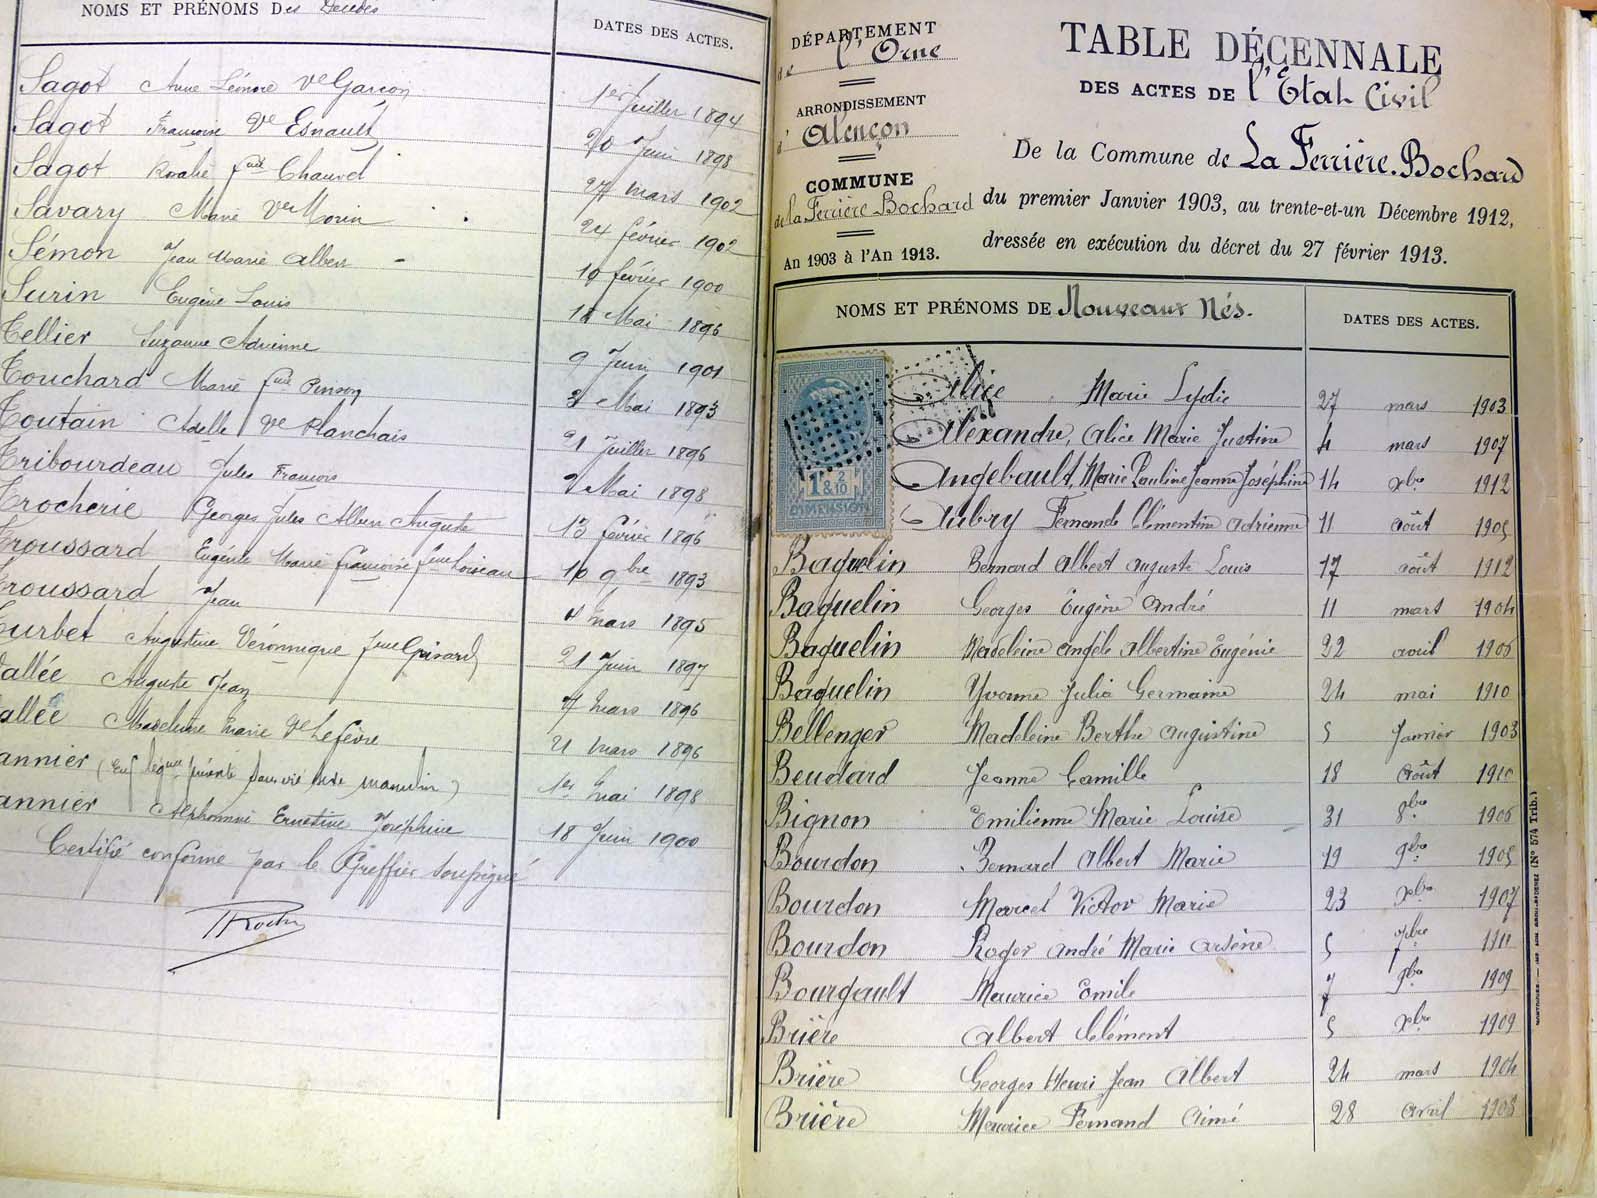 NOMS ET PRÉNOMS Des Décédés
DATES DES ACTES.
Sagot Anne Léonore Ve Garçon 1er Juillet 1894
Sagot Françoise Ve Esnault 20 Juin 1898
Sagot Rosalie Chauvel 27 mars 1902
Savary Marie Ve Morin 24 février 1902
Sémon Jean Marie Albert 10 février 1900
Surin Eugène Louis 18 Mai 1896
Tellier Suzanne Adrienne 9 Juin 1901
Touchard Marie Pinson 2 Mai 1893
Toutain Adelle Ve Planchais 21 Juillet 1896
Tribourdeau Jules François 2 Mai 1898
Trocherie Georges Jules Albert Auguste 13 février 1896
Troussard Eugénie Marie Françoise feme Loiseau 10 9bre 1893
Troussard Jean 4 mars 1895
Turbet Augustine Véronique feme Guisard 21 Juin 1897
Vallée Auguste Jean 7 mars 1896
Vallée Madeleine Marie Ve Lefèvre 21 mars 1896
Vannier (Enf présenté sans vie sexe masculin) 1er mai 1898
Vannier Alphonsine Ernestine Joséphine 18 Juin 1900
Certifié conforme par le Greffier soussigné
DÉPARTEMENT
de l'Orne
ARRONDISSEMENT
d'Alençon
COMMUNE
de la Ferrière Bochard
An 1903 à l'An 1913.
TABLE DÉCENNALE
DES ACTES DE l'État Civil
De la Commune de La Ferrière-Bochard
du premier Janvier 1903, au trente-et-un Décembre 1912,
dressée en exécution du décret du 27 février 1913.
NOMS ET PRÉNOMS DE Nouveaux Nés.
DATES DES ACTES.
1 & 2/10
DIMENSION
Alice Marie Lydie 27 mars 1903
Alexandre, Alice Marie Justine 4 mars 1907
Angebault, Marie Pauline Jeanne Joséphine 14 xbre 1912
Aubry Fernande Clémentine Adrienne 11 août 1905
Baguelin Bernard Albert Auguste Louis 17 août 1912
Baguelin Georges Eugène André 11 mars 1904
Baguelin Madeleine Angèle Albertine Eugénie 22 avril 1906
Baguelin Yvonne Julia Germaine 24 mai 1910
Bellenger Madeleine Berthe Augustine 5 Janvier 1903
Beudard Jeanne Camille 18 août 1910
Bignon Emilienne Marie Louise 31 8bre 1906
Bourdon Bernard Albert Marie 19 9bre 1905
Bourdon Marcel Victor Marie 23 xbre 1907
Bourdon Roger André Marie Arsène 5 7bre 1911
Bourgault Maurice Emile 7 9bre 1909
Brière Albert Clément 5 xbre 1909
Brière Georges Henri Jean Albert 24 mars 1904
Brière Maurice Fernand Aimé 28 avril 1908
(N° 574 Trib.)